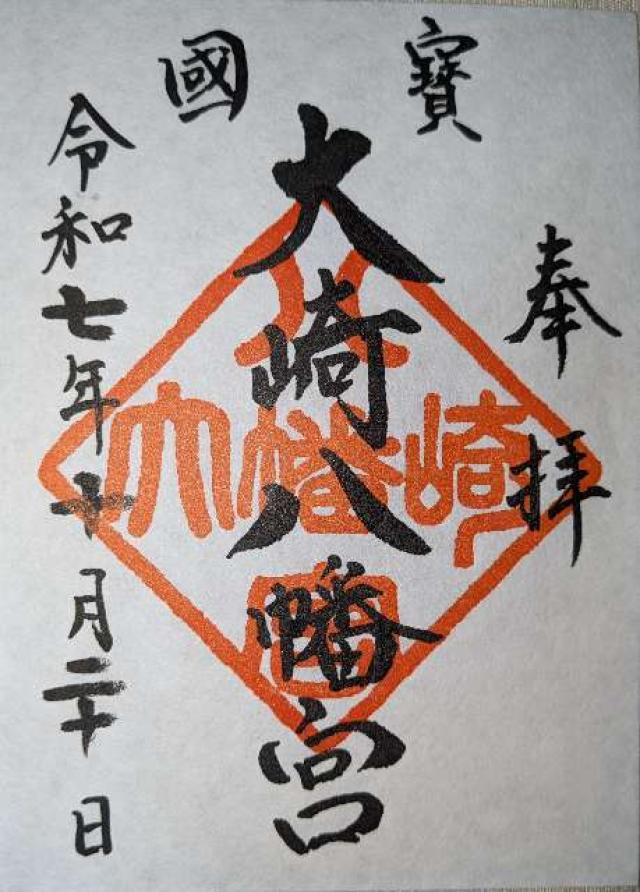 寶國
奉拝
大崎八幡宮
令和七年十月二十日
八
大幡崎
宮